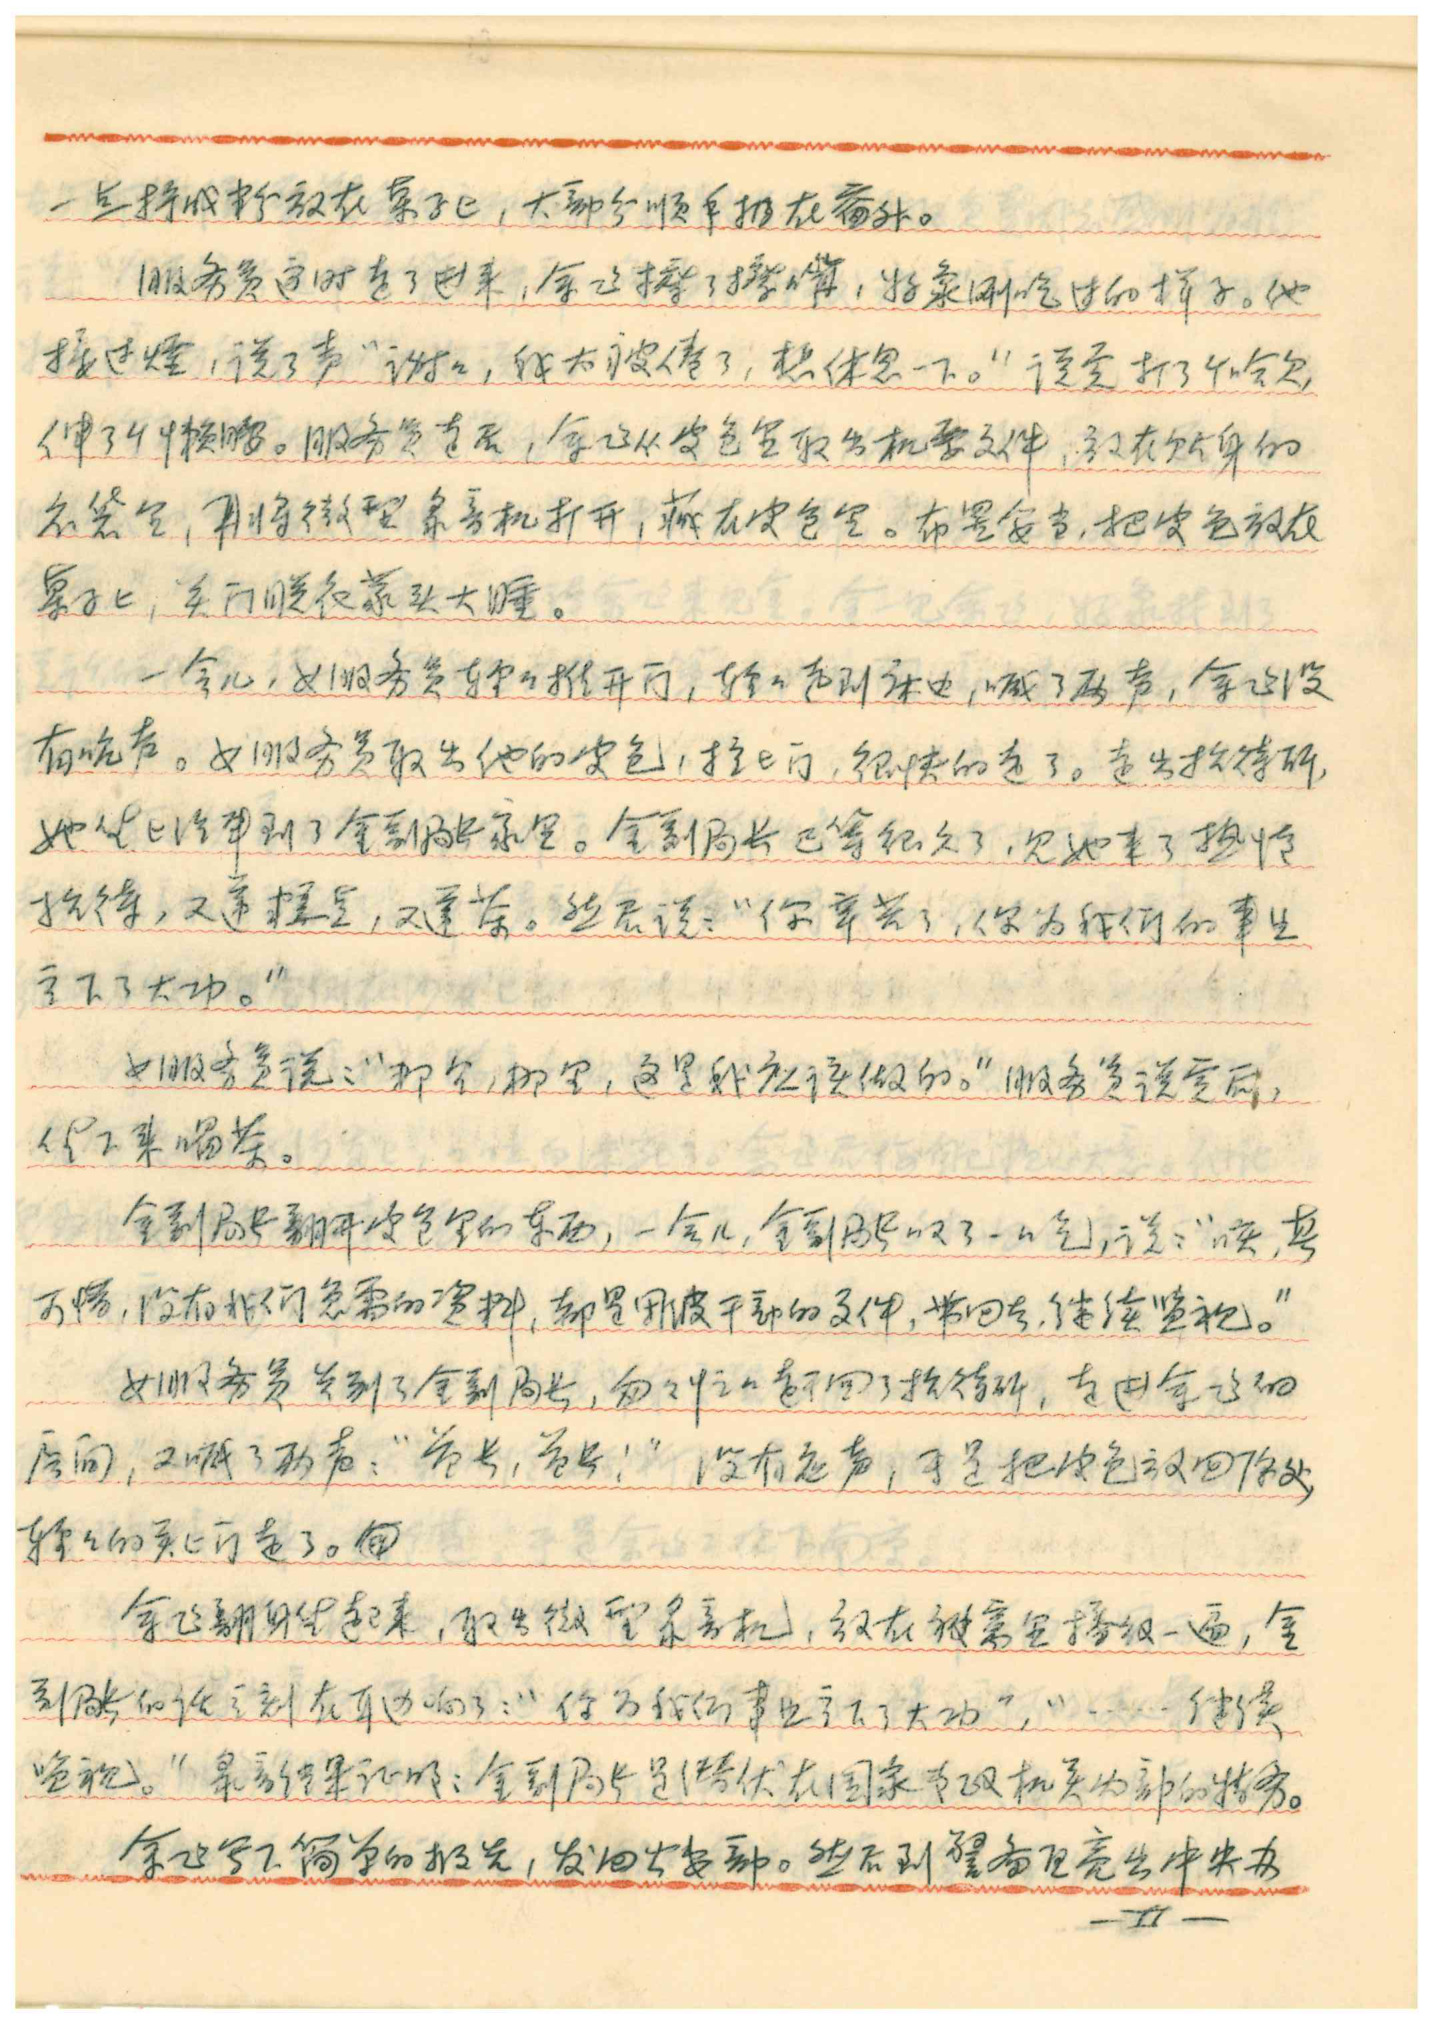 一点捽成粉放在桌子上，大部分顺手扔在窗外。
服务员这时走了进来，余飞擦了擦嘴，好象刚吃过的样子。他
接过烟，说了声“谢々，我太疲倦了，想休息一下。”说完打了个哈欠，
伸了个懒腰。服务员走后，余飞从皮包里取出机要文件，放在贴身的
衣袋里，再将微型录音机打开，藏在皮包里。布置妥当，把皮包放在
桌子上，关门脱衣蒙头大睡。
一会儿，女服务员轻々推开门，轻々走到床边，喊了两声，余飞没
有吭声。女服务员取出他的皮包，拉上门，很快的走了。走出招待所，
她坐上汽车到了金副局长家里。金副局长已等很久了，见她来了热情
招待，又递糕点，又递茶。然后说：“你辛苦了，你为我们的事业
立下了大功。”
女服务员说：“那里，那里，这是我应该做的。”服务员说完后，
坐下来喝茶。
金副局长翻开皮包里的东西，一会儿，金副局长叹了一口气，说：“唉，真
可惜，没有我们急需的资料，都是用波干部的文件，带回去，继续监视。”
女服务员告别了金副局长，匆々忙々走回了招待所，走进余飞的
房间，又喊了两声：“首长，首长！”没有应声，于是把皮包放回原处，
轻々的关上门走了。
余飞翻身坐起来，取出微型录音机，放在被窝里播放一遍，金
副局长的话立刻在耳边响了：“你为我们事业立下了大功”，“……继续
监视。”录音结果证明：金副局长是潜伏在国家专政机关内部的特务。
余飞写下简单的报告，发回公安部。然后到警备区亮出中央办
—11—